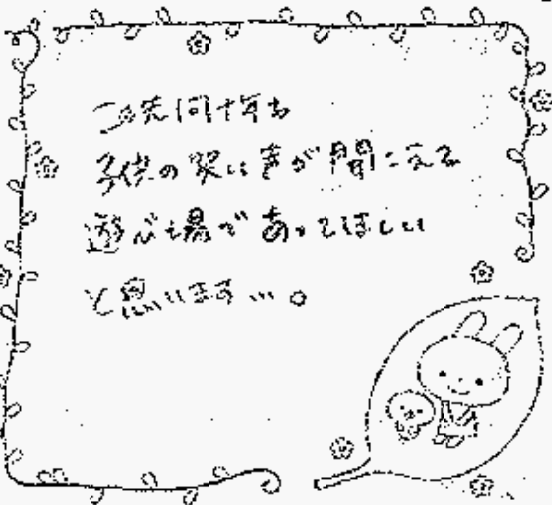 この先何十年も
子供の笑い声が聞こえる
遊び場があってほしい
と思います…。